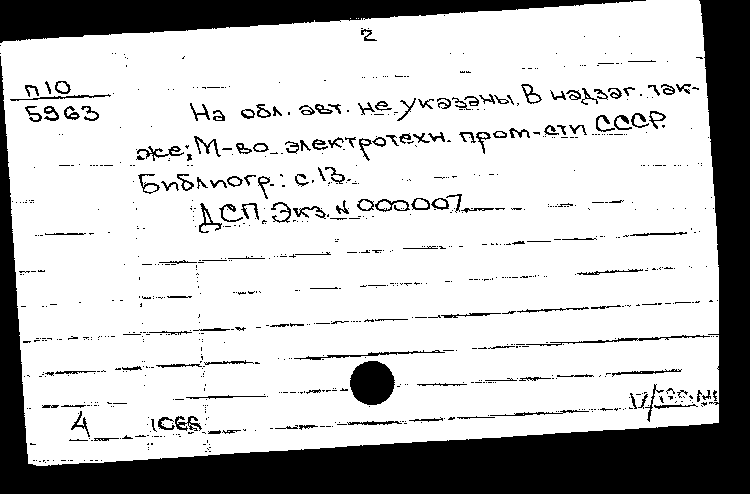 2
п10
5963
На обл. авт. не указаны. В надзаг. так-
же: М-во электротехн. пром-сти СССР.
Библиогр.: с. 13.
ДСП. Экз. № 000007.
4
17/